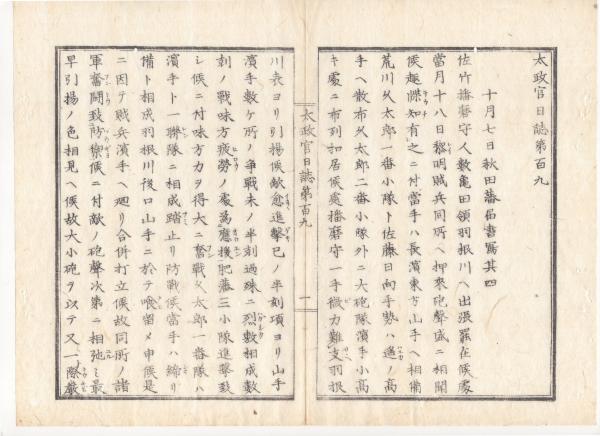 太政官日誌第百九
十月七日秋田藩届書寫其四
佐竹播磨守人數亀田領羽根川ヘ出張罷在候處
當月十八日黎明賊兵同所ヘ押來砲聲盛ニ相聞
候趣傑知有之ニ付當手ハ長濱東方山手ヘ相備
荒川久太郎一番小隊ト佐藤日向手勢ハ邉ノ高
手ヘ散布久太郎二番小隊外ニ大砲隊濱手小高
キ處ニ布列扣居候處播磨守一手微力難支羽根
太政官日誌第百九 一
川表ヨリ引揚候敵愈進撃已ノ半刻頃ヨリ山手
濱手數ケ所ノ争戰未ノ半刻過殊ニ烈數相成數
刻ノ戰味方疲勞ノ處爲應援肥藩三小隊進撃致
シ候ニ付味方力ヲ得大ニ奮戰久太郎一番隊ハ
濱手ト一聯隊ニ相成踏止リ防戰候當手ハ締リ
備ト相成羽根川後口山手ニ於テ喰留メ申候是
ニ因テ賊兵濱手ヘ廻リ合併打立候故同所ノ諸
軍奮鬪致防禦候ニ付敵ノ砲聲次第ニ相弛ミ最
早引揚ノ色相見ヘ候故大小砲ヲ以テ又一際嚴